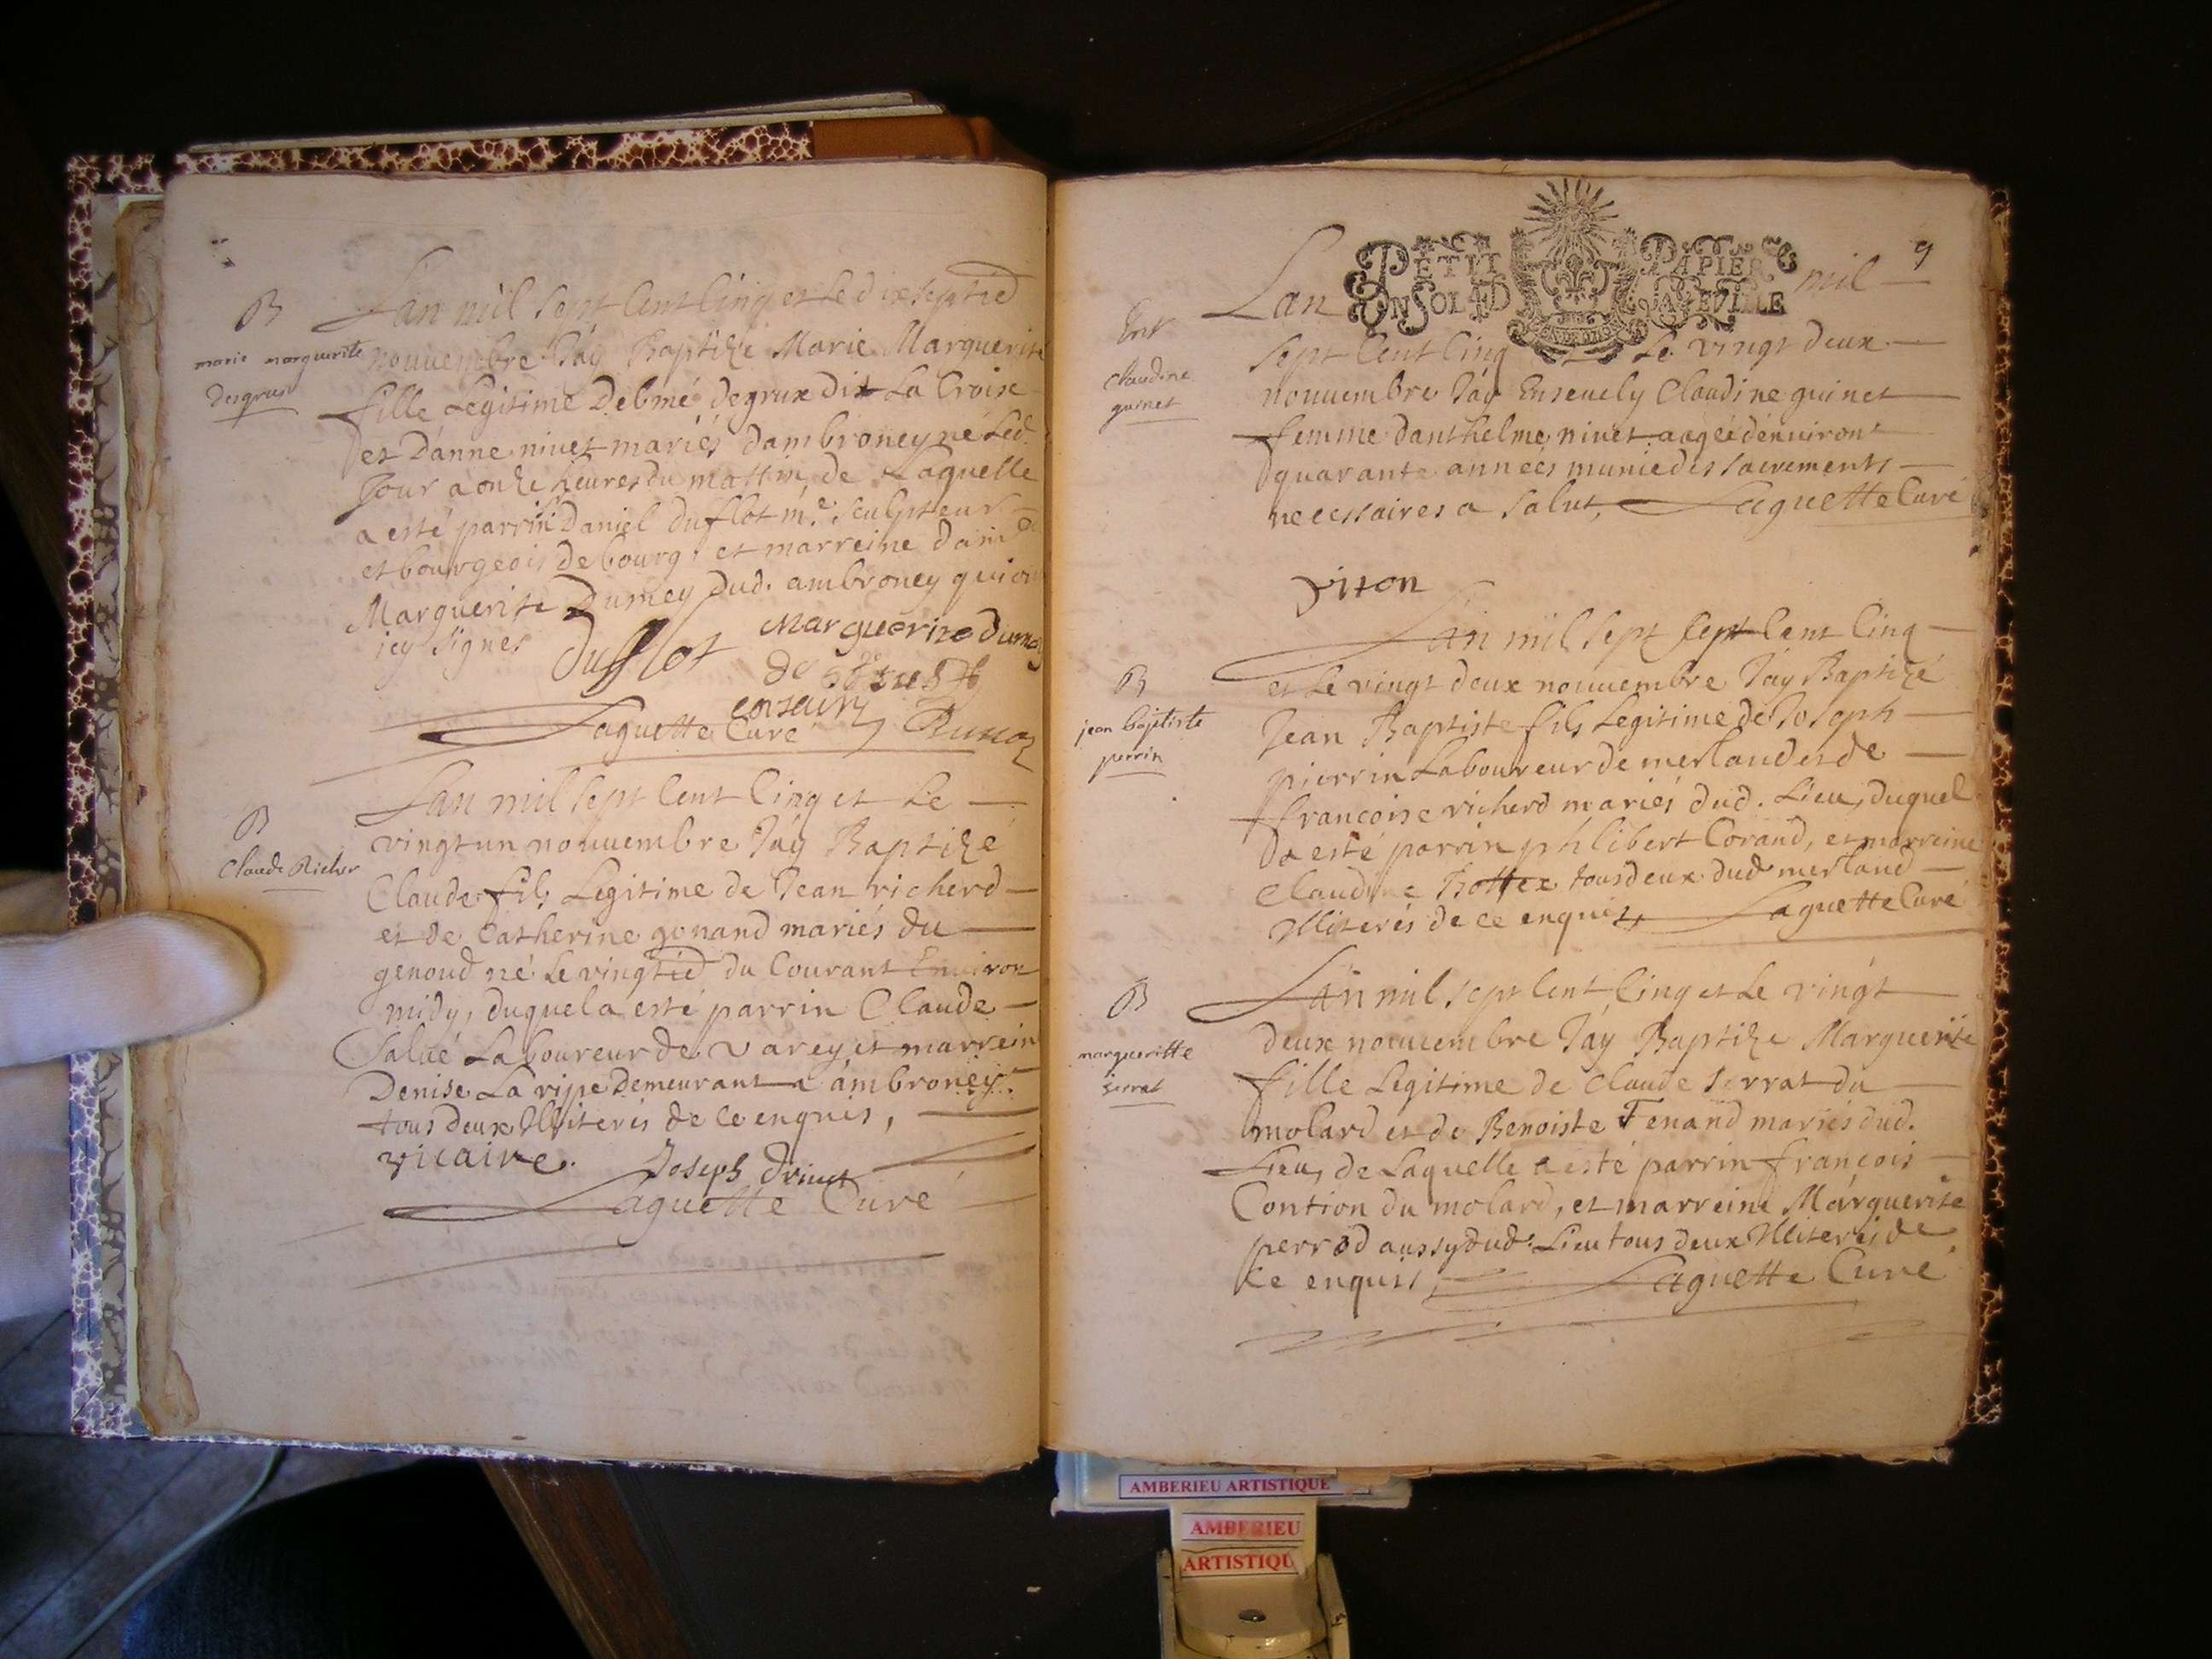 B
marie marguerite
Desgrus
Lan mil sept Cent Cinq et le dixseptie
nouuembre J'ay Baptize Marie Marguerite
fille Legitime D'ebmé degrux dit La Croix
et D'anne niuet mariés dambroney né Led.
Jour a onze heures du mattin, de Laquelle
a esté parrin Daniel duflot me. Sculpteur
et bourgeois de bourg, et marreine dam
Marguerite Dumey Dud. ambroney qui on
icy signes
Duflot
Marguerite dumey
Laguette Curé
B
Claude Richer
Lan mil sept Cent Cinq et Le
vingt un nouuembre J'ay Baptizé
Claude fils Legitime de Jean richerd
et de Catherine gonand mariés du
genoud né Le vingtie du Courant Enuiron
midy, duquel a esté parrin Claude
Salué Laboureur de varey et marrein
Denise La ripe Demeurant a ambroney
tous deux Illiterés de ce enquis,
vicaire.
Joseph Driuet
Laguette Curé
9
PETIT PAPIER
EN SOL 4D LA FEVILLE
Ent
Claudine
guinet
Lan mil
sept Cent Cinq et Le vingt deux
nouuembre J'ay Enseuely Claudine guinet
femme d'anthelme niuet aagée d'enuiront
quarante années munie des sacrements
necessaires a salut, Laguette Curé
viton
B
jean baptiste
perrin
Lan mil sept sept Cent Cinq
et Le vingt deux nouuembre J'ay Baptizé
Jean Baptiste fils Legitime de Joseph
pierrin Laboureur de merland et de
francoise richerd mariés dud. Lieu, duquel
a esté parrin philibert Corand, et marreine
Claudine trottex tous deux dud merland
Illiterés de ce enquis, Laguette Curé
B
margueritte
serrat
Lan mil sept Cent Cinq et Le vingt
deux nouuembre J'ay Baptize Marguerite
fille Legitime de Claude serrat du
molard et de Benoiste Tenand mariés dud.
Lieu, de Laquelle a esté parrin françois
Contion du molard, et marreine Marguerite
perrod aussy dud. Lieu tous deux Illiterés de
Ce enquis, Laguette Curé
AMBERIEU ARTISTIQUE
AMBERIEU
ARTISTIQU